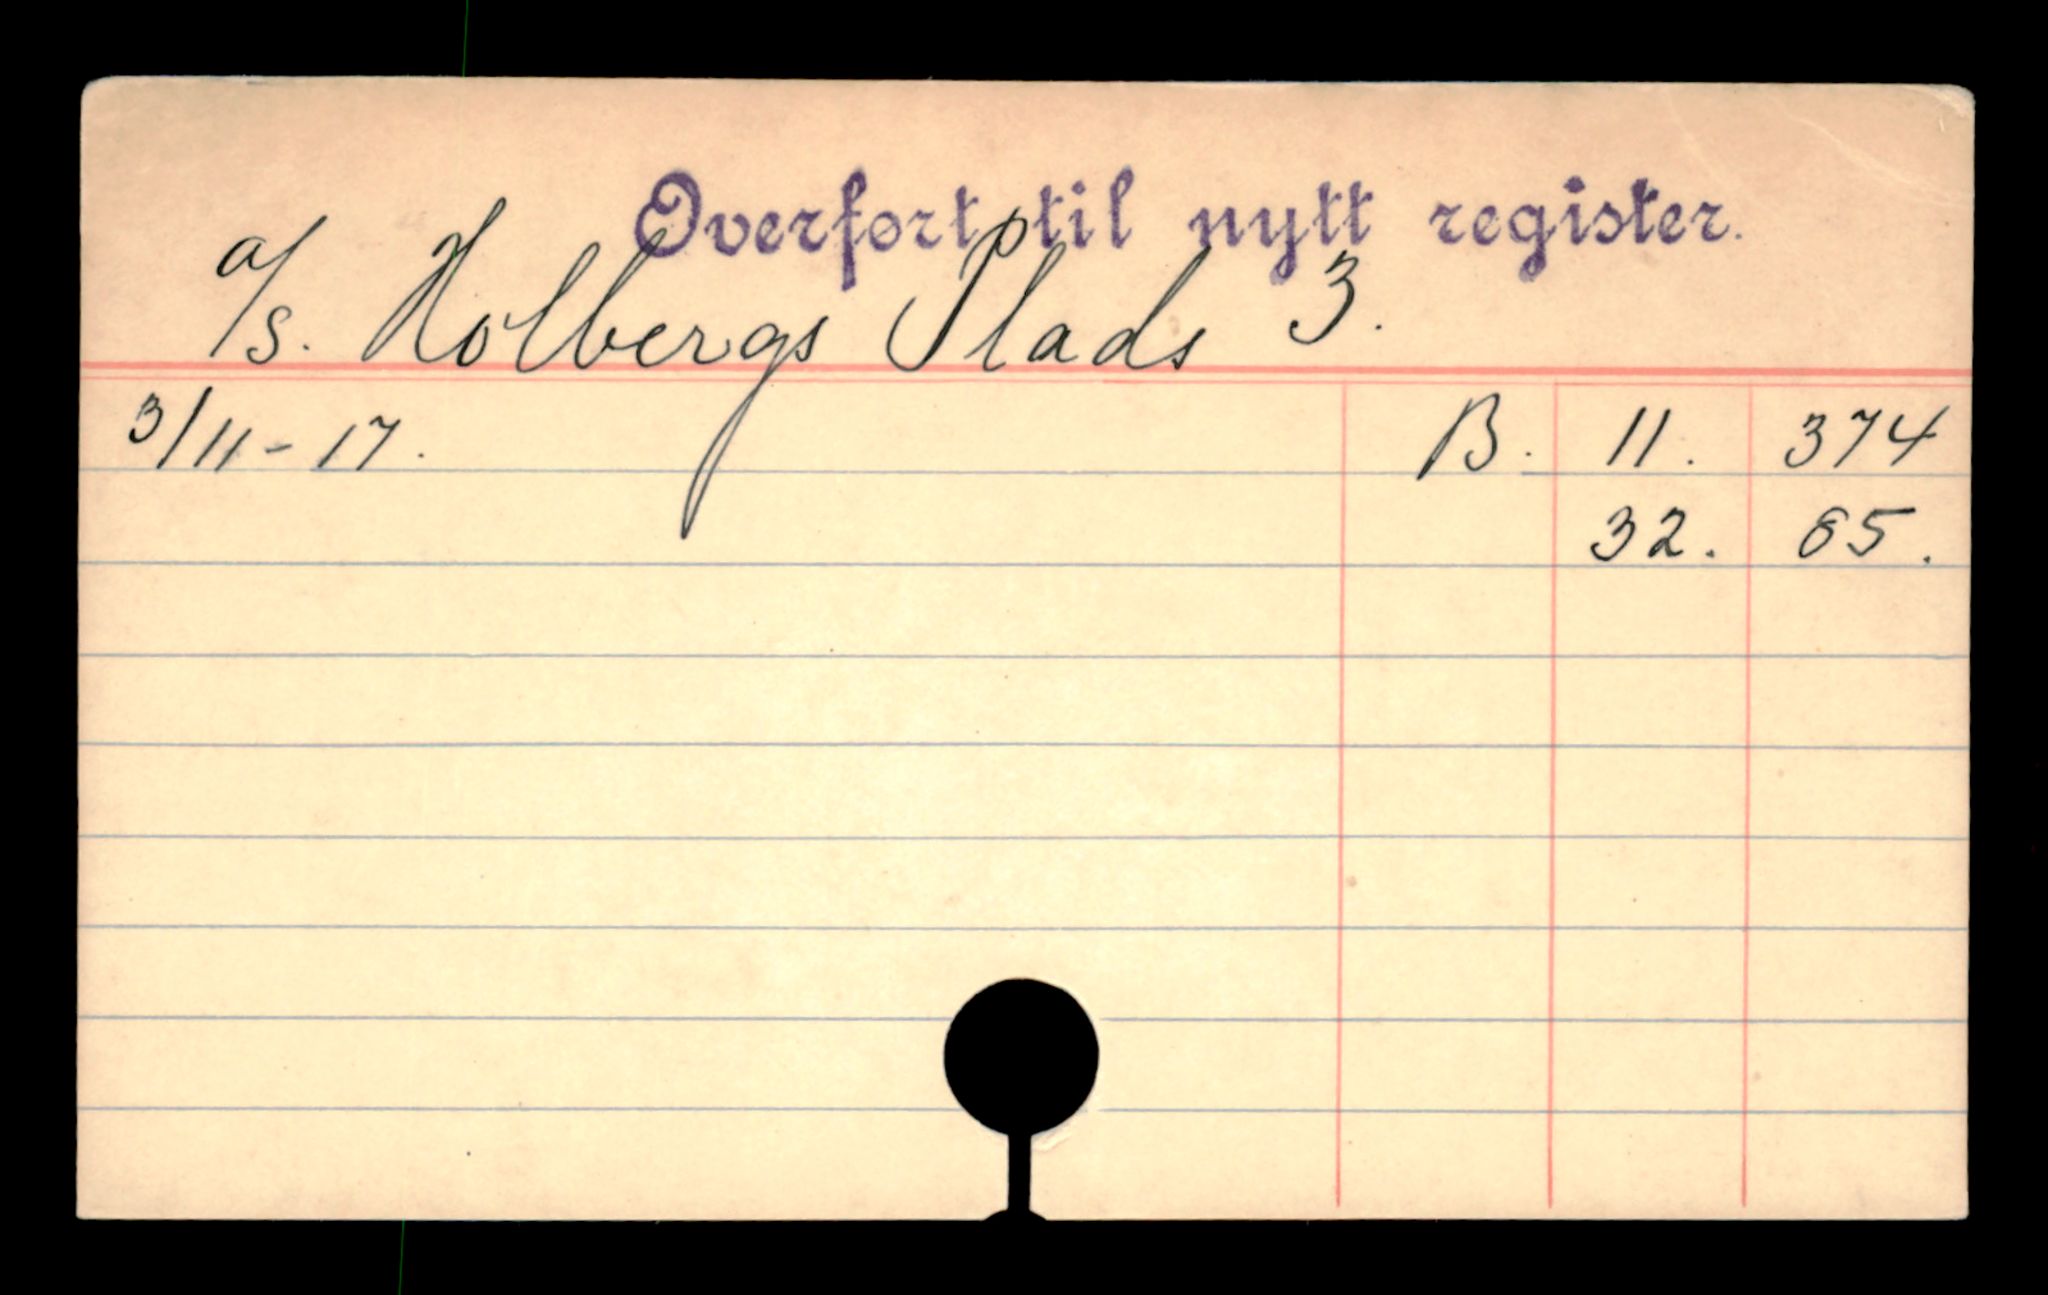 Overført til nytt register.
a/s. Holbergs Plads 3.
3/11-17. B. 11. 374
32. 85.